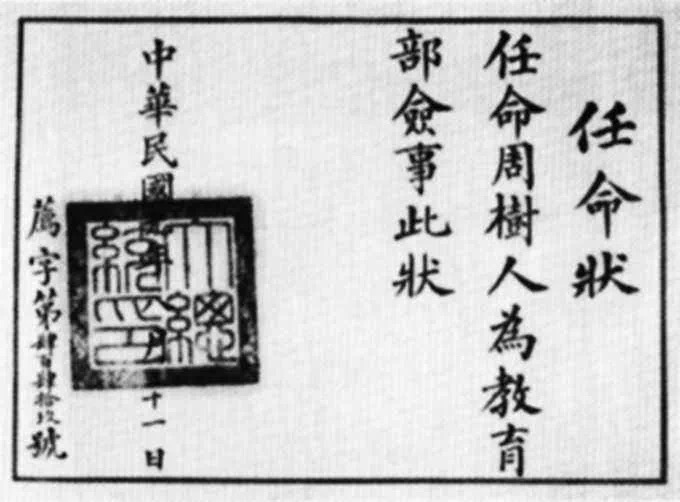 任命狀
任命周樹人為教育
部僉事此狀
中華民國年月十一日
大總統印
薦字第肆百肆拾玖號